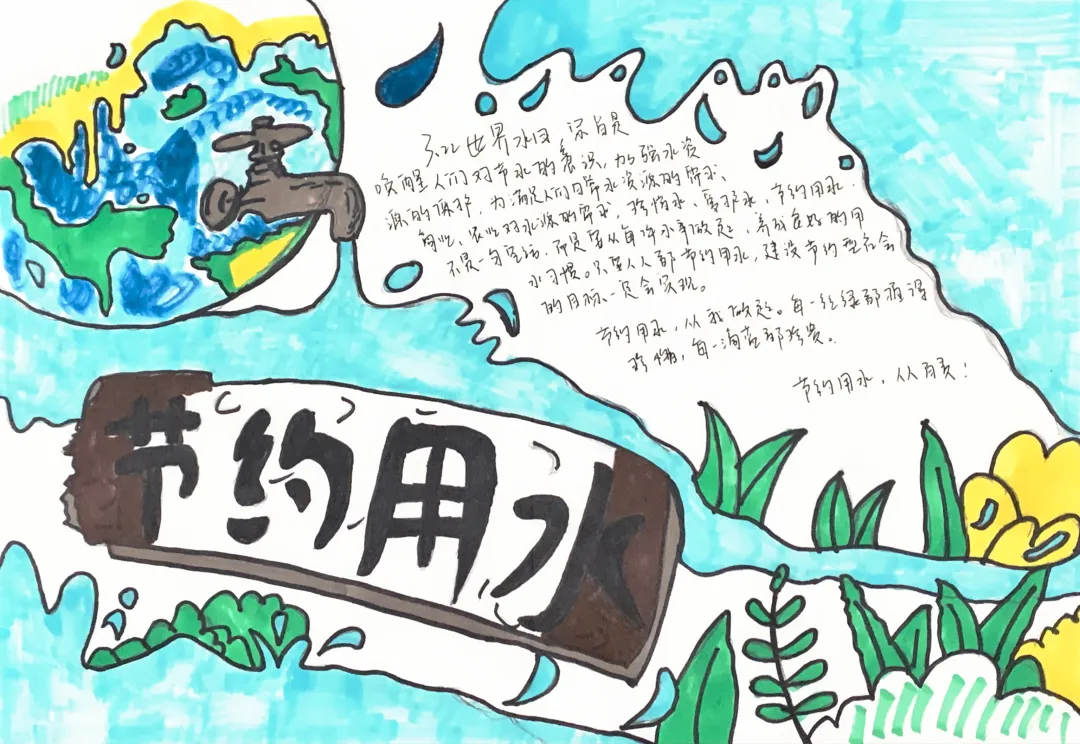 节约用水
世界水日,宗旨是
唤醒人们对节水的意识,加强水资
源的保护,为满足人们日常水资源的需求、
商业、农业对水源的需求,珍惜水、爱护水,节约用水.
不是一句空话,而是要从每件小事做起,养成良好的用
水习惯。只要人人都节约用水,建设节约型社会
的目标一定会实现。
节约用水,从我做起。每一丝绿都值得
珍惜,每一滴蓝都珍贵。
节约用水,人人有责!